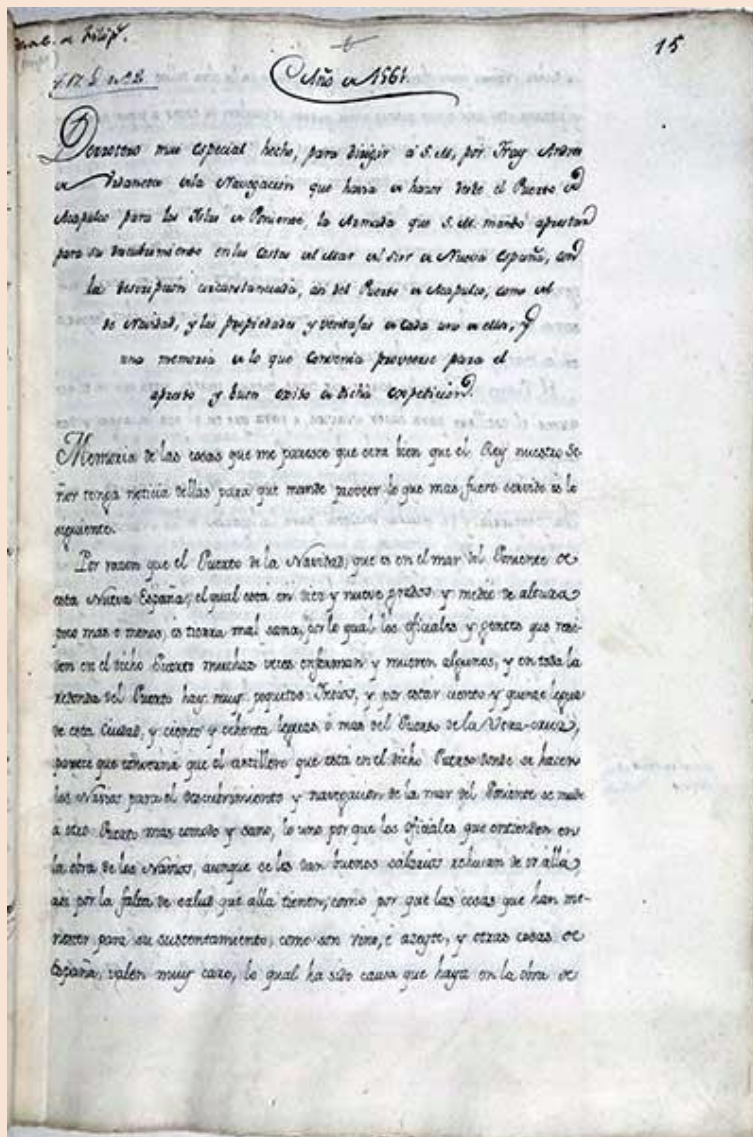 15
t. 17. D. n. 32.
Año de 1561.
Derrotero mui especial hecho, para dirigir á S. M. por Fray Andres
de Urdaneta de la Navegación que havia de hacer desde el Puerto de
Acapulco para las Islas de Poniente, la Armada que S. M. mandó aprestar
para su descubrimiento en las Costas del Mar del Sur de Nueva España, con
la descripcion circunstanciada, asi del Puerto de Acapulco, como el
de Navidad, y las propiedades y ventajas de cada uno de ellos, y
una memoria de lo que convenia proveerse para el
apresto y buen exito de dicha expedicion.
Memoria de las cosas que me paresce que sera bien que el Rey nuestro Se-
ñor tenga noticia dellas para que mande proveer lo que mas fuere servido es lo
siguiente.
Por razon que el Puerto de la Navidad, que es en el mar del Poniente de
esta Nueva España, el qual esta en diez y nueve grados y medio de altura
poco mas o menos, es tierra mal sana, por lo qual los oficiales y gentes que resi-
den en el dicho Puerto muchas veces enferman y mueren algunos, y en toda la
redonda del Puerto hay muy poquitos Indios, y por estar ciento y quinze leguas
de esta Ciudad, y ciento y ochenta leguas o mas del Puerto de la Vera-cruz,
parece que convernia que el astillero que esta en el dicho Puerto donde se hacen
los Navios para el descubrimiento y navegacion de la mar del Poniente se mude
á otro Puerto mas comodo y sano, lo uno por que los oficiales que entienden en
la obra de los Navios, aunque se les dan buenos salarios rehusan de ir allá,
asi por la falta de salud que alla tienen, como por que las cosas que han me-
nester para su sustentamiento, como son vino, é aseyte, y otras cosas de
España, valen muy caro, lo qual ha sido causa que haya en la obra de